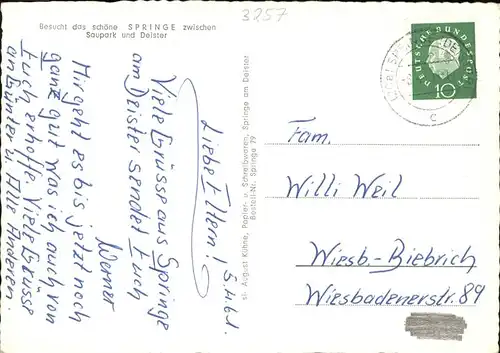 3257
Besucht das schöne SPRINGE zwischen
Saupark und Deister
DEUTSCHE BUNDESPOST
10
c
5.4.61.
Liebe Eltern!
Viele Grüsse aus Springe
am Deister sendet Euch
Werner
Mir geht es bis jetzt noch
ganz gut was ich auch von
Euch erhoffe. Viele Grüsse
an Günter u. Alle Anderen.
August Kühne, Papier- u. Schreibwaren, Springe am Deister
Bestell-Nr. Springe 79
Fam.
Willi Weil
Wiesb.-Biebrich
Wiesbadenerstr. 89